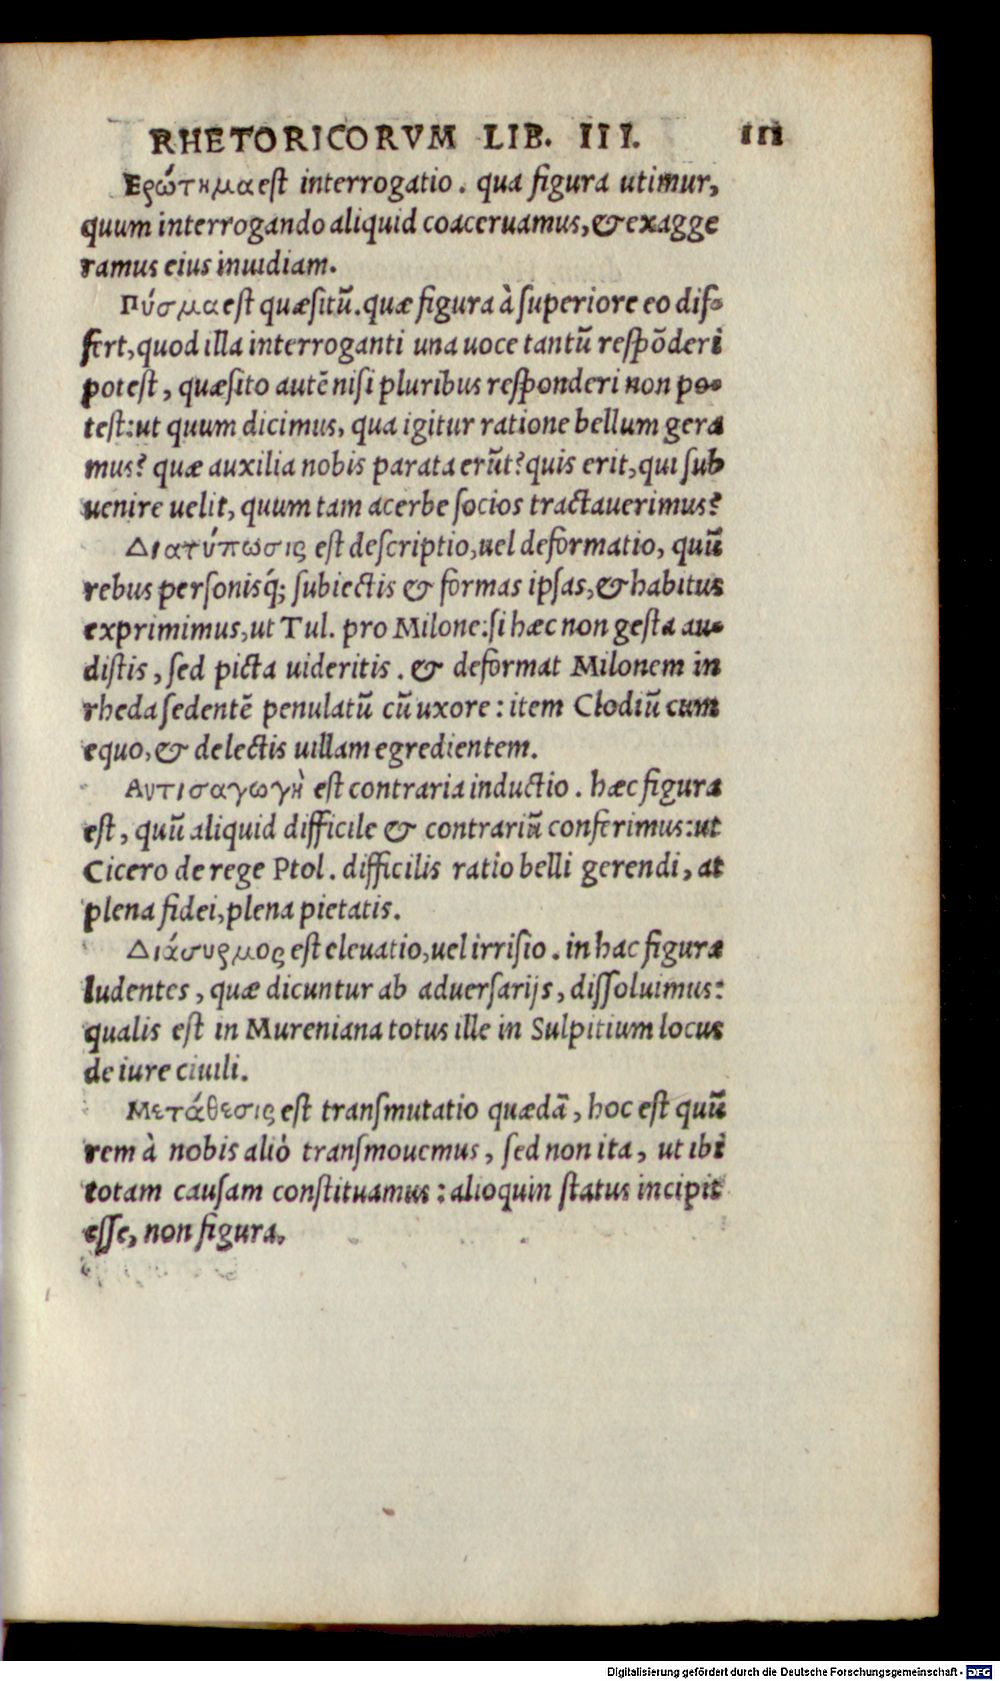 RHETORICORVM LIB. III. 111
Ερώτημα est interrogatio. qua figura utimur,
quum interrogando aliquid coaceruamus, & exagge
ramus eius inuidiam.
Πύσμα est quæsitū. quæ figura à superiore eo dif-
fert, quod illa interroganti una uoce tantū respōderi
potest, quæsito autē nisi pluribus responderi non po-
test: ut quum dicimus, qua igitur ratione bellum gera
mus? quæ auxilia nobis parata erūt? quis erit, qui sub
uenire uelit, quum tam acerbe socios tractauerimus?
Διατύπωσις est descriptio, uel deformatio, quū
rebus personisq́; subiectis & formas ipsas, & habitus
exprimimus, ut Tul. pro Milone: si hæc non gesta au-
distis, sed picta uideritis. & deformat Milonem in
rheda sedentē penulatū cū uxore: item Clodiū cum
equo, & delectis uillam egredientem.
Αντισαγωγὴ est contraria inductio. hæc figura
est, quū aliquid difficile & contrariū conferimus: ut
Cicero de rege Ptol. difficilis ratio belli gerendi, at
plena fidei, plena pietatis.
Διάσυρμος est eleuatio, uel irrisio. in hac figura
ludentes, quæ dicuntur ab aduersarijs, dissoluimus:
qualis est in Mureniana totus ille in Sulpitium locus
de iure ciuili.
Μετάθεσις est transmutatio quædā, hoc est quū
rem à nobis aliò transmouemus, sed non ita, ut ibi
totam causam constituamus: alioquin status incipit
esse, non figura.
Digitalisierung gefördert durch die Deutsche Forschungsgemeinschaft - DFG